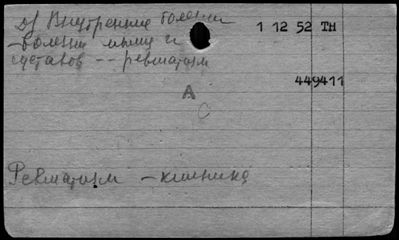 д) Внутренние болезни
1 12 52 TH
- болезни мышц и
суставов -- ревматизм
449411
A
C
Ревматизм - клиника